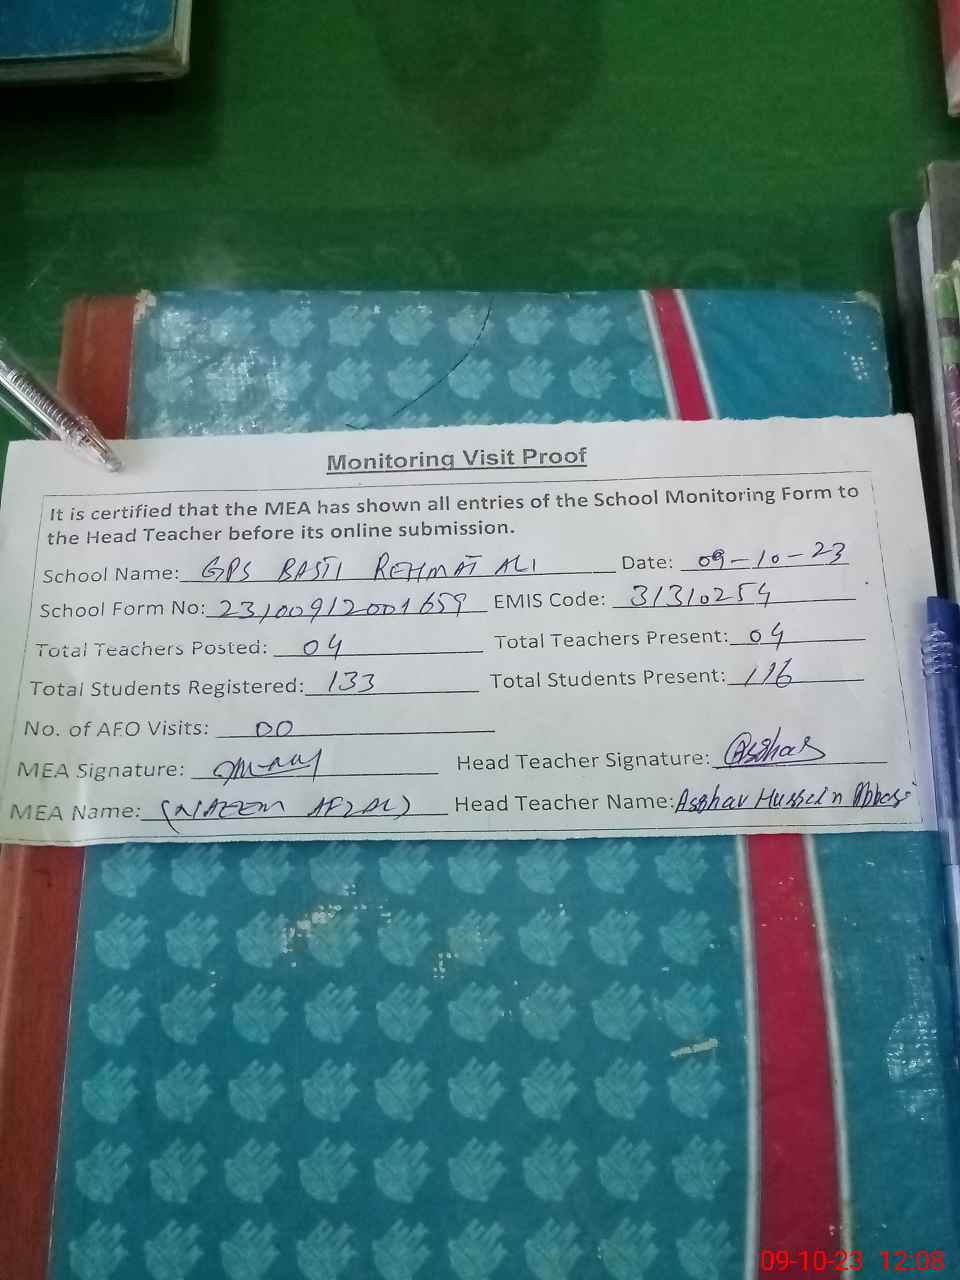 Monitoring Visit Proof
It is certified that the MEA has shown all entries of the School Monitoring Form to
the Head Teacher before its online submission.
School Name: GPS BASTI REHMAT ALI Date: 09-10-23
School Form No: 23100912001659 EMIS Code: 31310254
Total Teachers Posted: 04 Total Teachers Present: 04
Total Students Registered: 133 Total Students Present: 116
No. of AEO Visits: 00
MEA Signature: Head Teacher Signature: Asghar
MEA Name: (NAEEM AFZAL) Head Teacher Name: Asghar Hussain Abbasi
09-10-23 12:08